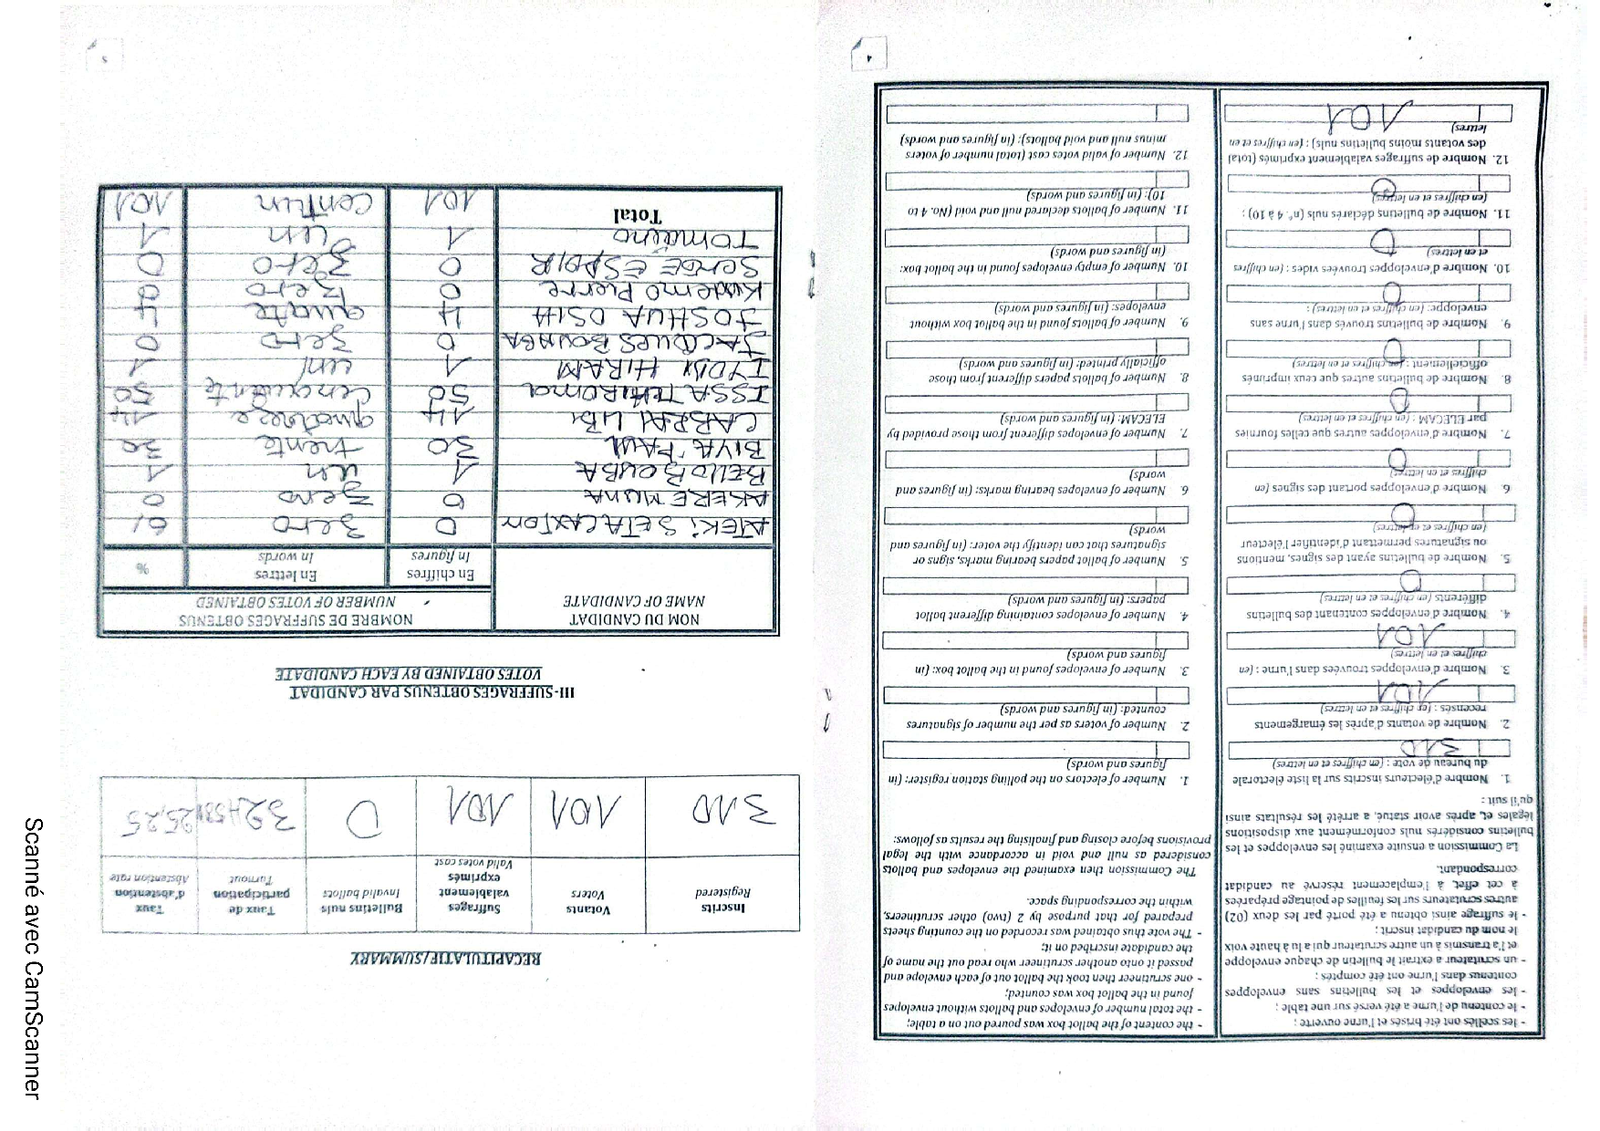 4
- les scellés ont été brisés et l'urne ouverte ;
- le contenu de l'urne a été versé sur une table ;
- les enveloppes et les bulletins sans enveloppes
contenus dans l'urne ont été comptés ;
- un scrutateur a extrait le bulletin de chaque enveloppe
et l'a transmis à un autre scrutateur qui a lu à haute voix
le nom du candidat inscrit ;
- le suffrage ainsi obtenu a été porté par les deux (02)
autres scrutateurs sur les feuilles de pointage préparées
à cet effet, à l'emplacement réservé au candidat
correspondant.
La Commission a ensuite examiné les enveloppes et les
bulletins considérés nuls conformément aux dispositions
légales et, après avoir statué, a arrêté les résultats ainsi
qu'il suit :
1. Nombre d'électeurs inscrits sur la liste électorale
du bureau de vote : (en chiffres et en lettres)
310
2. Nombre de votants d'après les émargements
recensés : (en chiffres et en lettres)
101
3. Nombre d'enveloppes trouvées dans l'urne : (en
chiffres et en lettres)
101
4. Nombre d'enveloppes contenant des bulletins
différents (en chiffres et en lettres)
0
5. Nombre de bulletins ayant des signes, mentions
ou signatures permettant d'identifier l'électeur
(en chiffres et en lettres)
0
6. Nombre d'enveloppes portant des signes (en
chiffres et en lettres)
0
7. Nombre d'enveloppes autres que celles fournies
par ELECAM : (en chiffres et en lettres)
0
8. Nombre de bulletins autres que ceux imprimés
officiellement : (en chiffres et en lettres)
0
9. Nombre de bulletins trouvés dans l'urne sans
enveloppe: (en chiffres et en lettres) :
0
10. Nombre d'enveloppes trouvées vides : (en chiffres
et en lettres)
0
11. Nombre de bulletins déclarés nuls (n°. 4 à 10) :
(en chiffres et en lettres)
0
12. Nombre de suffrages valablement exprimés (total
des votants moins bulletins nuls) : (en chiffres et en
lettres)
101
- the content of the ballot box was poured out on a table;
- the total number of envelopes and ballots without envelopes
found in the ballot box was counted;
- one scrutineer then took the ballot out of each envelope and
passed it onto another scrutineer who read out the name of
the candidate inscribed on it;
- The vote thus obtained was recorded on the counting sheets
prepared for that purpose by 2 (two) other scrutineers,
within the corresponding space.
The Commission then examined the envelopes and ballots
considered as null and void in accordance with the legal
provisions before closing and finalising the results as follows:
1. Number of electors on the polling station register: (in
figures and words)
2. Number of voters as per the number of signatures
counted: (in figures and words)
3. Number of envelopes found in the ballot box: (in
figures and words)
4. Number of envelopes containing different ballot
papers: (in figures and words)
5. Number of ballot papers bearing marks, signs or
signatures that can identify the voter: (in figures and
words)
6. Number of envelopes bearing marks: (in figures and
words)
7. Number of envelopes different from those provided by
ELECAM: (in figures and words)
8. Number of ballots papers different from those
officially printed: (in figures and words)
9. Number of ballots found in the ballot box without
envelopes: (in figures and words)
10. Number of empty envelopes found in the ballot box:
(in figures and words)
11. Number of ballots declared null and void (No. 4 to
10): (in figures and words)
12. Number of valid votes cast (total number of voters
minus null and void ballots): (in figures and words)
5
RECAPITULATIF/SUMMARY
Inscrits Registered | Votants Voters | Suffrages valablement exprimés Valid votes cast | Bulletins nuls Invalid ballots | Taux de participation Turnout | Taux d'abstention Abstention rate
310 | 101 | 101 | 0
III- SUFFRAGES OBTENUS PAR CANDIDAT
VOTES OBTAINED BY EACH CANDIDATE
NOM DU CANDIDAT NAME OF CANDIDATE | NOMBRE DE SUFFRAGES OBTENUS NUMBER OF VOTES OBTAINED
En chiffres In figures | En lettres In words | %
ATEKI SETA CAXTON 0 zero
AKERE MUNA 0 zero 0
BELLO BOUBA 1 un 1
BIYA PAUL 30 trente 30
CABRAL LIBII 14 quatorze 14
ISSA TCHIROMA 50 cinquante 50
IYODI HIRAM 1 un 1
JACQUES BOUNGA 0 zero 0
JOSHUA OSIH 4 quatre 4
Kwemo Pierre 0 zero 0
SERGE ESPOIR 0 zero 0
Tomaino 1 un 1
Total 101 Cent un 101
Scanné avec CamScanner